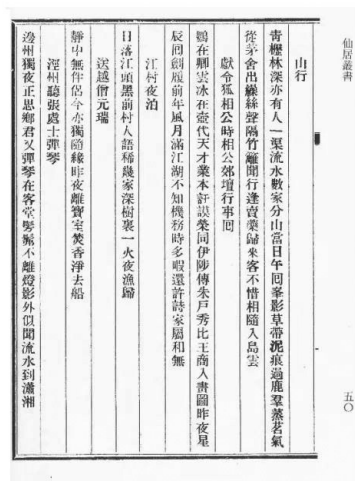 仙居叢書
五〇
山行
青櫪林深亦有人一渠流水數家分山當日午回峯影草帶泥痕過鹿羣蒸茗氣
從茅舍出繰絲聲隔竹籬聞行逢賣藥歸來客不惜相隨入島雲
獻令狐相公時相公郊壇行事回
鶴在卿雲冰在壺代天才業本訏謨榮同伊陟傳朱戶秀比王商入畫圖昨夜星
辰回劍履前年風月滿江湖不知機務時多暇還許詩家屬和無
江村夜泊
日落江頭黑前村人語稀幾家深樹裏一火夜漁歸
送越僧元瑞
靜中無伴侶今亦獨隨緣昨夜離寶室焚香淨去船
涇州聽張處士彈琴
邊州獨夜正思鄉君又彈琴在客堂髣髴不離燈影外似聞流水到瀟湘